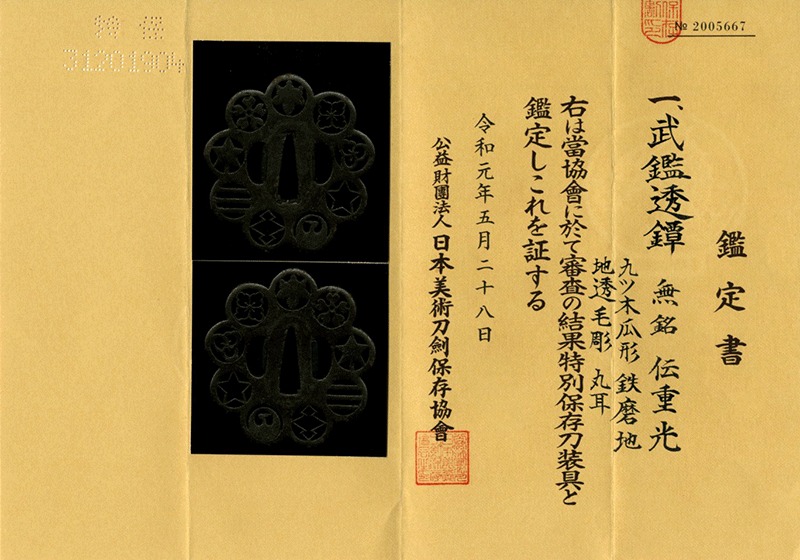 № 2005667
鑑定書
一、武鑑透鐔 無銘 伝重光
九ツ木瓜形 鉄磨地
地透毛彫 丸耳
右は當協會に於て審査の結果特別保存刀装具と
鑑定しこれを証する
令和元年五月二十八日
公益財團法人 日本美術刀劍保存協會
31201904